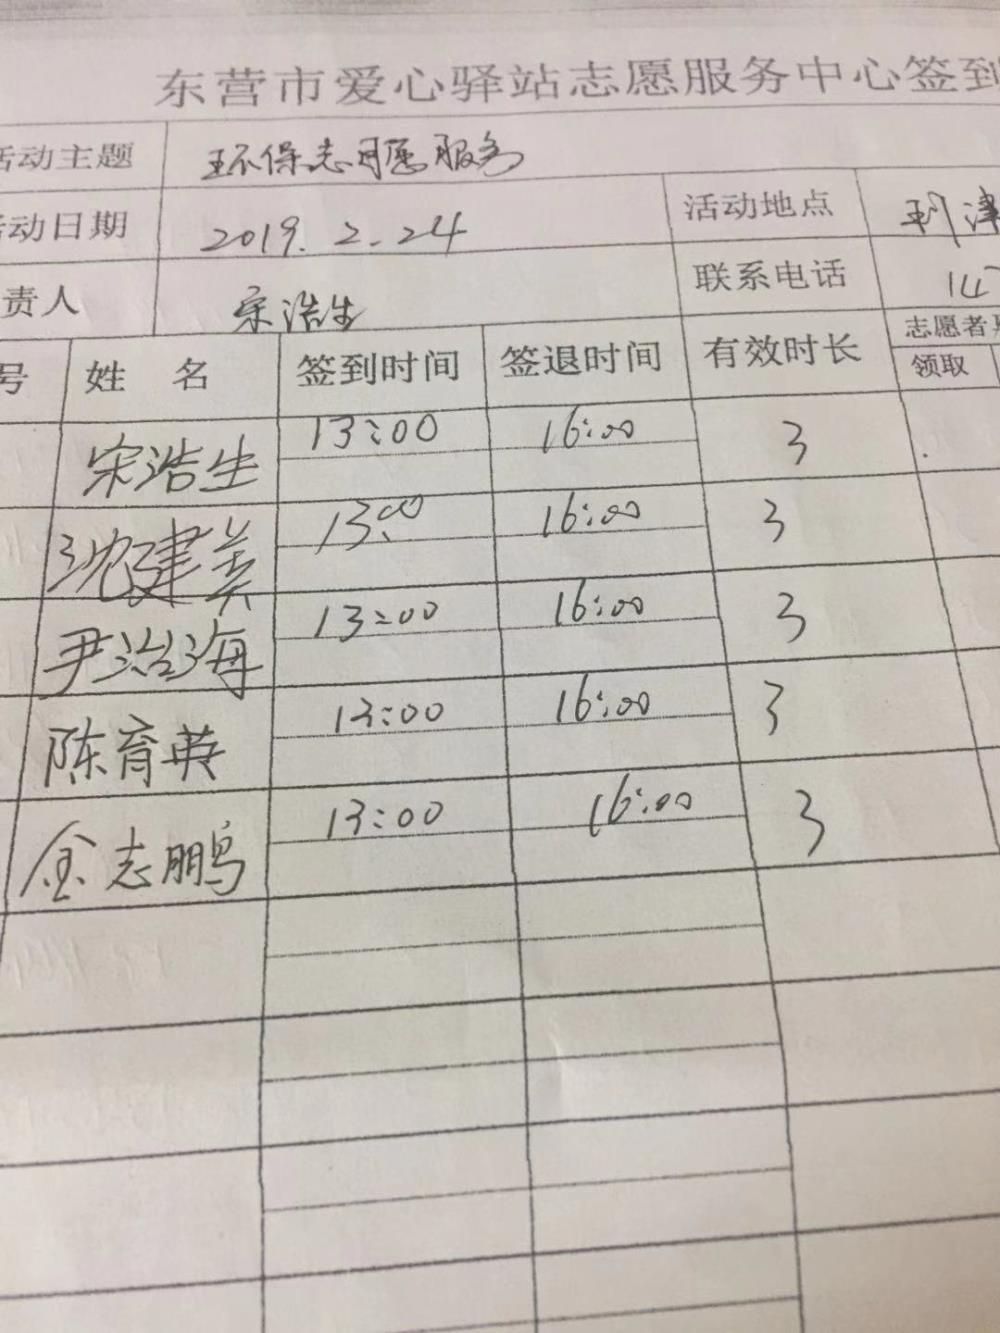 东营市爱心驿站志愿服务中心签到
活动主题 环保志愿服务
活动日期 2019.2.24 活动地点 利津
责人 宋浩生 联系电话 147
号 姓 名 签到时间 签退时间 有效时长 志愿者
领取
宋浩生 13:00 16:00 3
沈建美 13:00 16:00 3
尹治海 13:00 16:00 3
陈育英 13:00 16:00 3
金志鹏 13:00 16:00 3